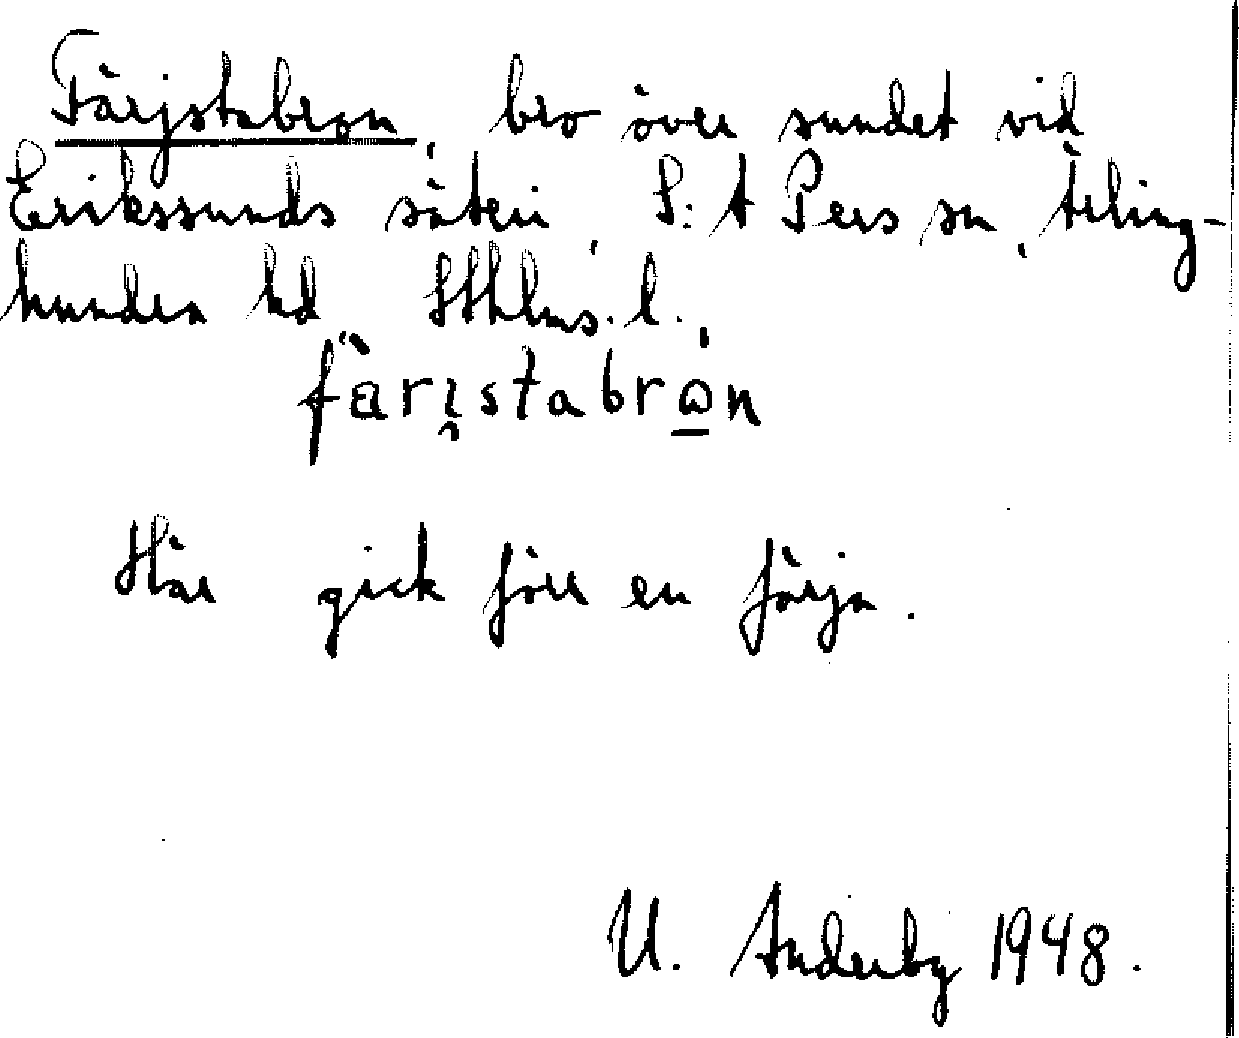 Färjstabron, bro över sundet vid
Erikssunds säteri, S:t Pers sn, Ärling-
hundra hd Sthlms. l.
färistabrón
Här gick förr en färja.
U. Anderby 1948.